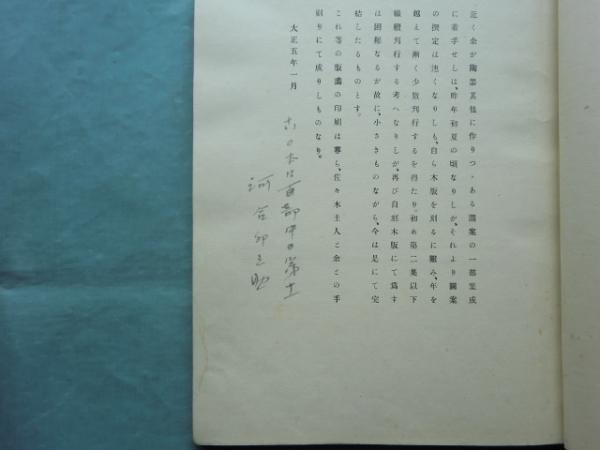 近く余が陶器其他に作りつゝある圖案の一部集成
に着手せしは、昨年初夏の頃なりしが、それより圖案
の撰定は速くなりしも、自ら木版を刻るに難み、年を
越えて漸く少數刊行するを得たり。初め第二集以下
繼續刊行する考へなりしが、再び自刻木版にて爲す
は困難なるが故に、小さきものながら、今は是にて完
結したるものとす。
これ等の版畫の印刷は專ら、佐々木土人と余との手
刷りにて成りしものなり。
大正五年一月
この本は百部中の第十
河合卯之助